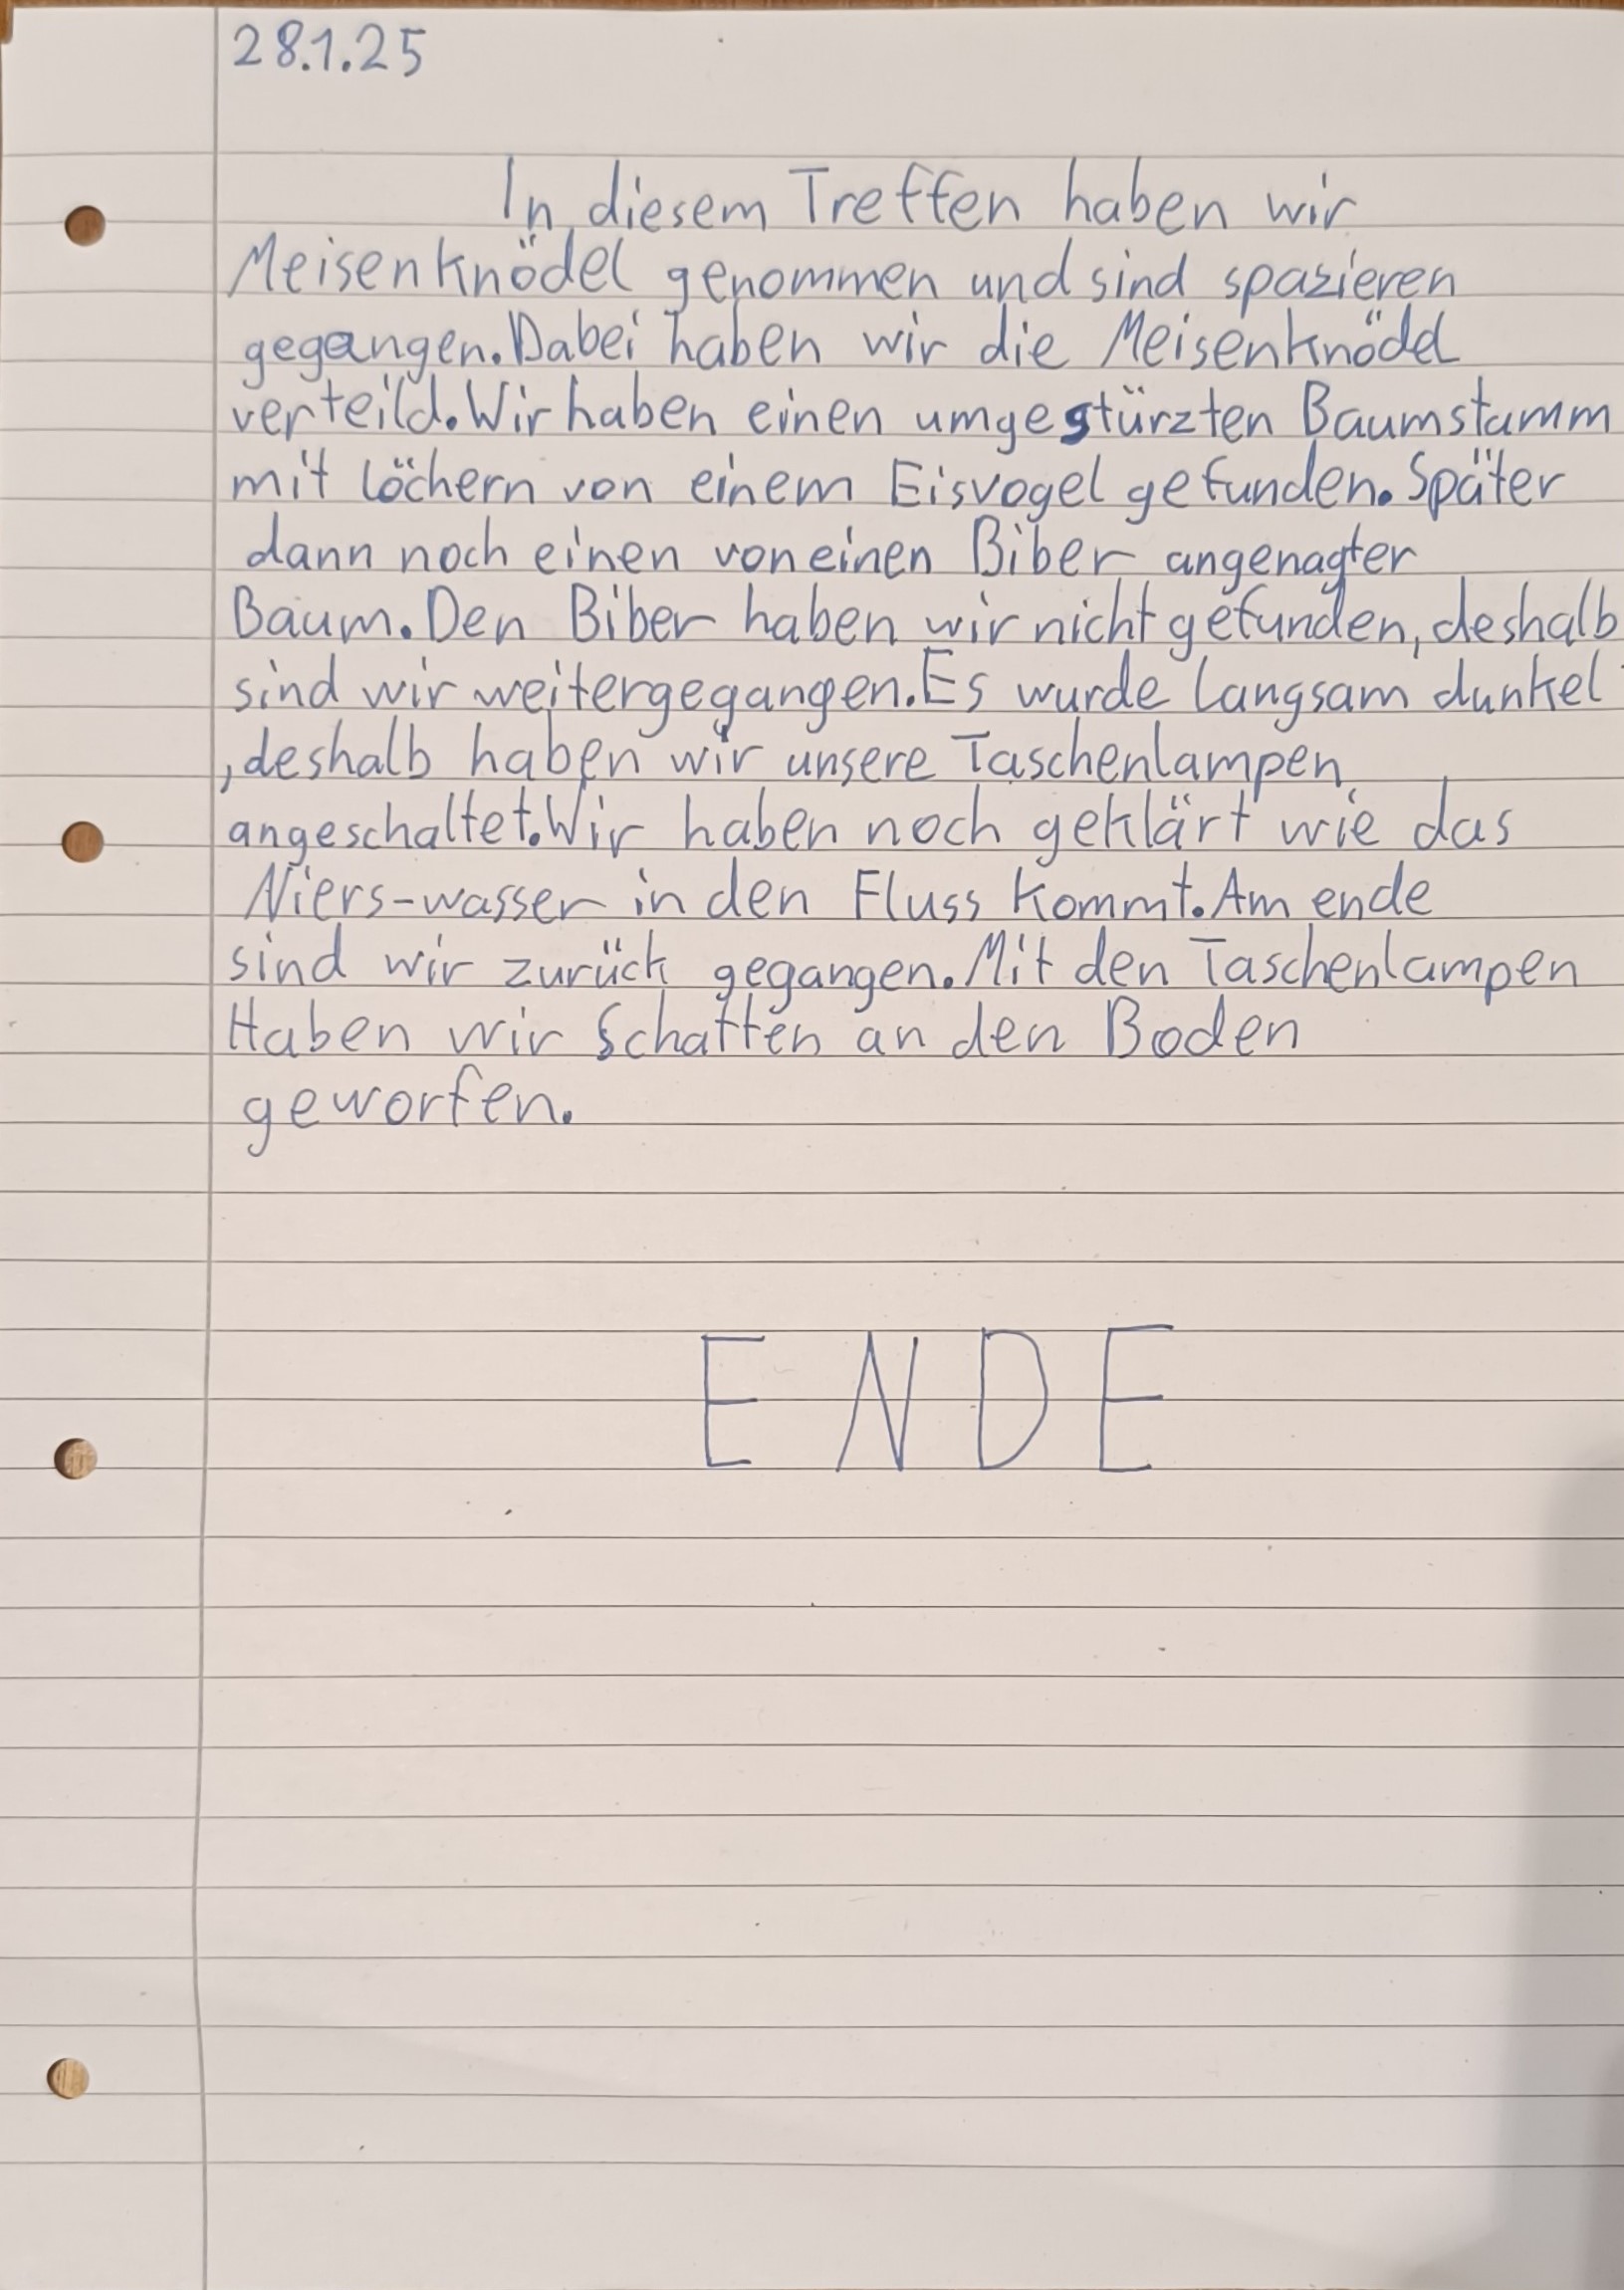 28.1.25
In diesem Treffen haben wir
Meisenknödel genommen und sind spazieren
gegangen. Dabei haben wir die Meisenknödel
verteild. Wir haben einen umgestürzten Baumstamm
mit löchern von einem Eisvogel gefunden. Später
dann noch einen von einen Biber angenagter
Baum. Den Biber haben wir nicht gefunden, deshalb
sind wir weitergegangen. Es wurde langsam dunkel
, deshalb haben wir unsere Taschenlampen
angeschaltet. Wir haben noch geklärt wie das
Niers-wasser in den Fluss kommt. Am ende
sind wir zurück gegangen. Mit den Taschenlampen
Haben wir Schatten an den Boden
geworfen.
ENDE